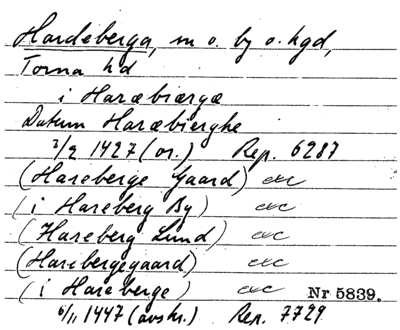 Hardeberga, m o. by o. hgd,
Torna hd
i Haræbiærgæ
Datum Haræbierghe
2/2 1427 (or.) Rep. 6287
(Hareberge Gaard)
(i Hareberg By)
(Hareberg Lund)
(Harebergegaard)
(i Hareberge) Nr 5839.
6/11 1447 (avskr.) Rep. 7729